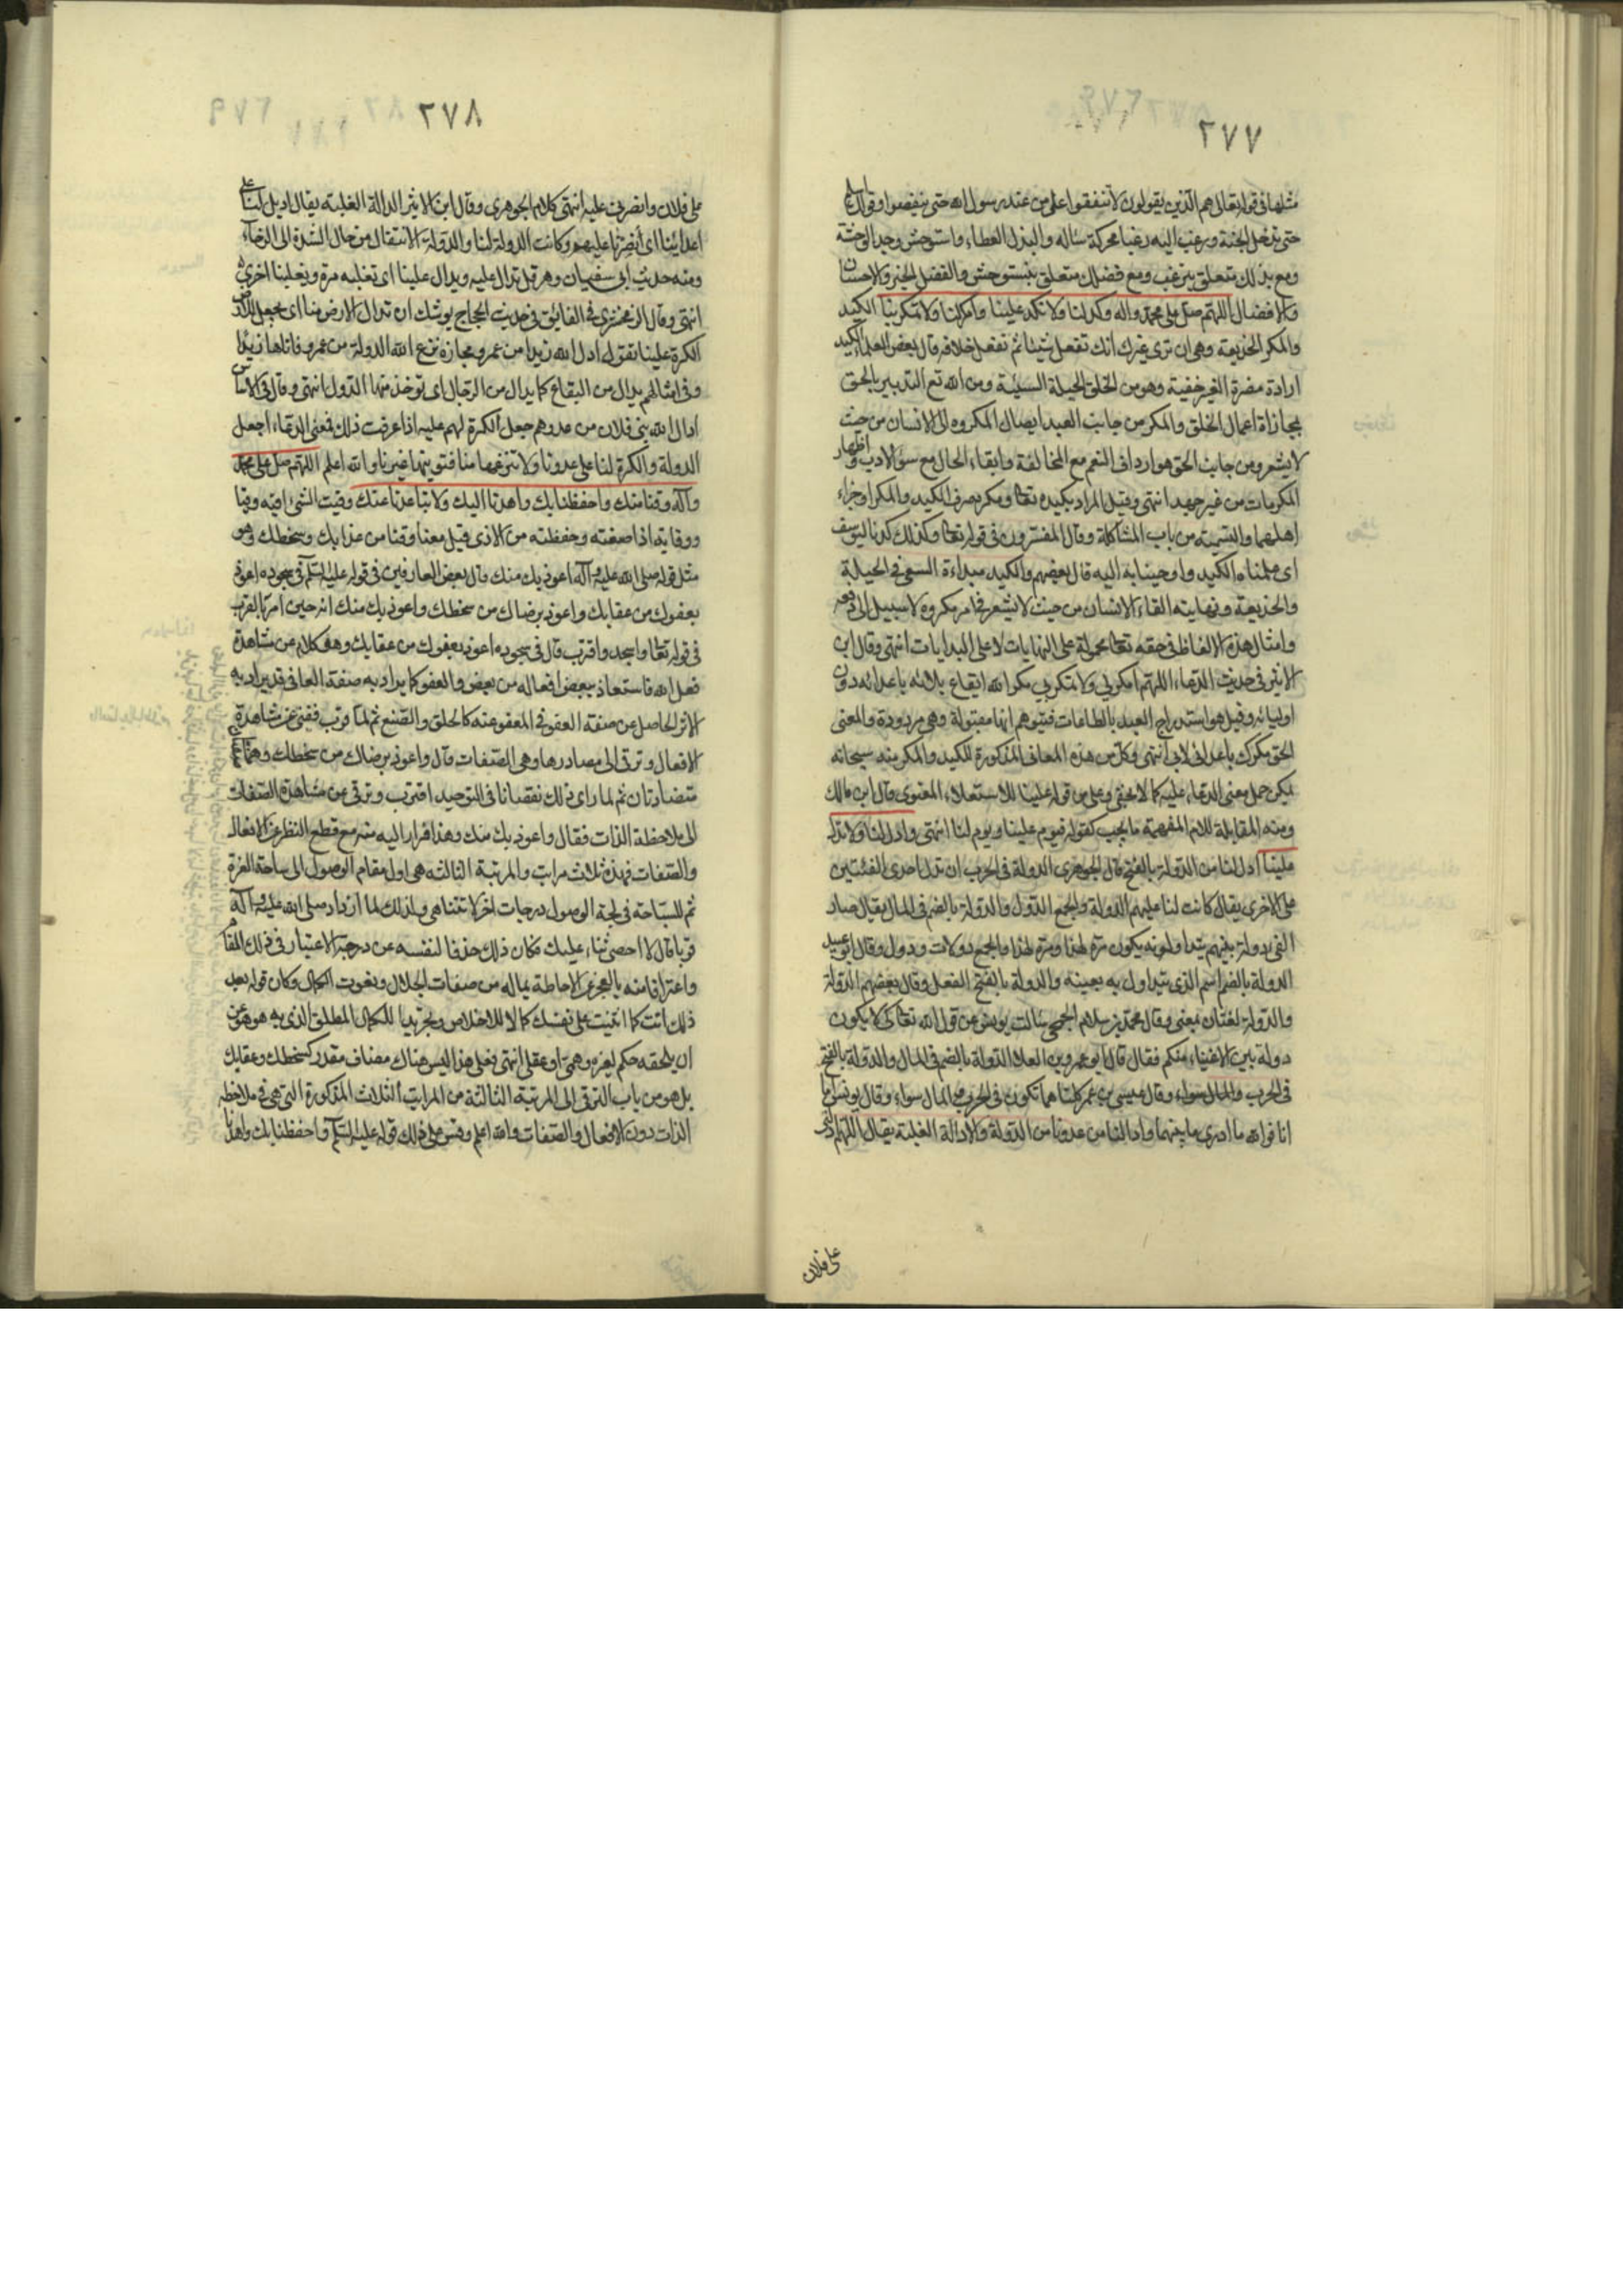 ٢٧٧
مثلها فى قوله تعالى هم الذين يقولون لا تنفقوا على من عند رسول الله حتى ينفضوا وقولك
حتى تدخل الجنة ورغب اليه رغبا محركة سئاله والبذل العطاء واستوحش وجد الوحشة
ومع بذلك متعلق بترغب ومع فضلك متعلق بنستوحش والفضل الخير والاحسان
والافضال اللهم صل على محمد واله وكد لنا ولا تكد علينا وامكر لنا ولا تمكر بنا الكيد
والمكر الخديعة وهى ان ترى غيرك انك تفعل شيئا ثم تفعل خلافه قال بعض العلماء الكيد
ارادة مضرة الغير خفية وهو من الخلق الحيلة السيئة ومن الله تع التدبير بالحق
بمجازاة اعمال الخلق والمكر من جانب العبد ايصال المكروه الى الانسان من حيث
لا يشعر ومن جانب الحق هو ارداف النعم مع المخالفة وابقاء الحال مع سوء الادب واظهار
الكرمات من غير جهد انتهى وقيل المراد بكيده تعا ومكره صرف الكيد والمكر او جزاء
اهلهما والتسمية من باب المشاكلة وقال المفسرون فى قوله تعا وكذلك كدنا ليوسف
اى علمناه الكيد واوحينا به اليه قال بعضهم والكيد مبداءة السعى فى الحيلة
والخديعة ونهايته القاء الانسان من حيث لا يشعر فى امر مكروه لا سبيل الى دفعه
وامثال هذه الالفاظ فى حقه تعا محمولة على النهايات لا على البدايات انتهى وقال ابن
الاثير فى حديث الدعاء اللهم امكر لى ولا تمكر بى مكر الله ايقاع بلائه باعدائه دون
اوليائه وقيل هو استدراج العبد بالطاعات فيتوهم انها مقبولة وهى مردودة والمعنى
الحق مكرك باعدائى لا بى انتهى وكل من هذه المعانى المذكورة للكيد والمكر منه سبحانه
يمكن حمل معنى الدعاء عليه كما لا يخفى وعلى من قوله علينا للاستعلاء المعنوى وقال ابن مالك
ومنه المقابلة للام المفهمة ما يجب كقوله فيوم علينا ويوم لنا انتهى وادل لنا ولا تدل
علينا ادل لنا من الدولة بالفتح قال الجوهرى الدولة فى الحرب ان تدل احدى الفئتين
على الاخرى يقال كانت لنا عليهم الدولة والجمع الدول والدولة بالضم فى المال يقال صار
الفئ دولة بينهم يتداولونه يكون مرة لهذا ومرة لهذا والجمع دولات ودول وقال ابو عبيد
الدولة بالضم اسم الذى يتداول به بعينه والدولة بالفتح الفعل وقال بعضهم الدولة
والدولة لغتان بمعنى وقال محمد بن سلام الجمحى سئالت يونس عن قول الله تعالى كى لا يكون
دولة بين الاغنياء منكم فقال قال ابو عمرو بن العلا الدولة بالضم فى المال والدولة بالفتح
فى الحرب وقال عيسى بن عمر كلتاهما تكون فى الحرب والمال سواء وقال يونس اما
انا فوالله ما ادرى ما بينهما وادالنا من عدونا من الدولة والادالة الغلبة يقال اللهم ادلنى
على فلان
٢٧٨
على فلان وانصرنى عليه انتهى كلام الجوهرى وقال ابن الاثير الدالة الغلبة يقال اديل لنا على
اعدائنا اى نصرنا عليهم وكانت الدولة لنا والدولة الانتقال من حال الشدة الى الرخاء
ومنه حديث ابى سفيان وهرقل تدال عليه ويدال علينا اى نغلبه مرة ويغلبنا اخرى
انتهى وقال الزمخشرى فى الفائق فى حديث الحجاج يوشك ان تدال الارض منا اى تجعل
الكرة علينا تقول ادال الله زيدا من عمرو مجازه نزع الله الدولة من عمرو فاتاها زيدا
وفى امثالهم يدال من البقاع كما يدال من الرجال اى توخذ منها الدول انتهى وقال فى الاساس
ادال الله بنى فلان من عدوهم جعل الكرة لهم عليه اذا عرفت ذلك فمعنى الدعاء اجعل
الدولة والكرة لنا على عدونا ولا تنزعها منا فتوتيها غيرنا والله اعلم اللهم صل على محمد
وآله وقنا منك واحفظنا بك واهدنا اليك ولا تباعدنا عنك وقيت الشئ اقيه وقيا
ووقاية اذا صنته وحفظته من الاذى قيل معنا وقنا من عذابك وسخطك وهو
مثل قوله صلى الله عليه وآله اعوذ بك منك وقال بعض العارفين فى قوله عليه السلم فى سجوده اعوذ
بعفوك من عقابك واعوذ برضاك من سخطك واعوذ بك منك انه حين امر بالقرب
فى قوله تعا واسجد واقترب قال فى سجوده اعوذ بعفوك من عقابك وهو كلام عن مشاهدة
فعل الله فاستعاذ ببعض افعاله من بعض والعفو كما يراد به صفة العافى قد يراد به
الاثر الحاصل عن صفة العفو فى المعفو عنه كالخلق والصنع ثم لما قرب ففنى عن مشاهدة
الافعال وترقى الى مصادرها وهى الصفات قال واعوذ برضاك من سخطك وهما صفتان
متضادتان ثم لما راى ذلك نقصانا فى التوحيد اقترب وترقى عن مشاهدة الصفات
الى ملاحظة الذات فقال واعوذ بك منك وهذا فرار اليه منه مع قطع النظر عن الافعال
والصفات فهذه ثلاث مراتب والمرتبة الثالثة هى اول مقام الوصول الى ساحة العزة
ثم للسباحة فى لجة الوصول درجات اخر لا تتناهى ولذلك لما ازداد صلى الله عليه وآله
قربا قال لا احصى ثناء عليك فكان ذلك حذفا لنفسه عن درجة الاعتبار فى ذلك المقام
واعترافا منه بالعجز عن الاحاطة بماله من صفات الجلال ونعوت الكمال وكان قوله بعد
ذلك انت كما اثنيت على نفسك كمالا للاخلاص وتجريدا للكمال المطلق الذى به هو هو عن
ان يلحقه حكم لغيره وهمى او عقلى انتهى فعلى هذا ليس هناك مضاف مقدر كسخطك وعقابك
بل هو من باب الترقى الى المرتبة الثالثة من المراتب الثلاث المذكورة التى هى ملاحظة
الذات دون الافعال والصفات والله اعلم وقس على ذلك قوله عليه السلم واحفظنا بك واهدنا